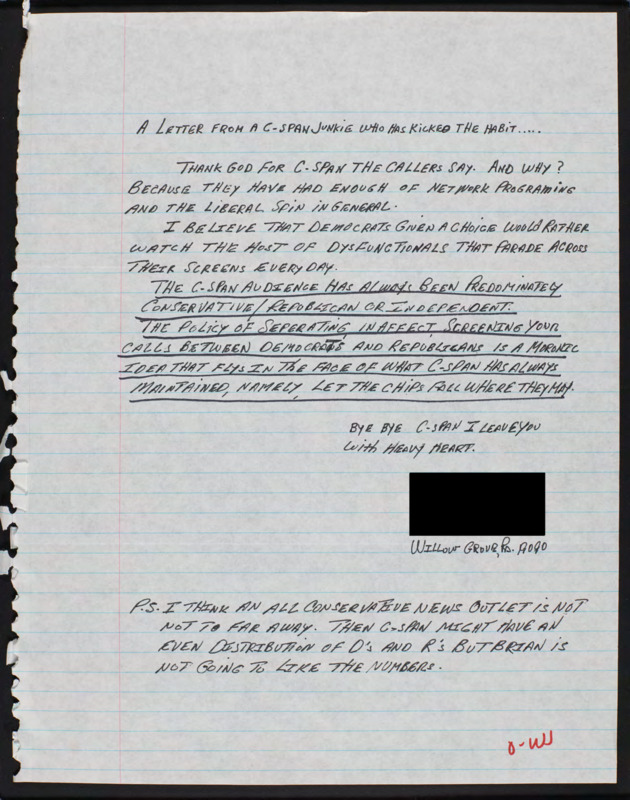 A LETTER FROM A C-SPAN JUNKIE WHO HAS KICKED THE HABIT.....
THANK GOD FOR C-SPAN THE CALLERS SAY. AND WHY?
BECAUSE THEY HAVE HAD ENOUGH OF NETWORK PROGRAMING
AND THE LIBERAL SPIN IN GENERAL.
I BELIEVE THAT DEMOCRATS GIVEN A CHOICE WOULD RATHER
WATCH THE HOST OF DYSFUNCTIONALS THAT PARADE ACROSS
THEIR SCREENS EVERYDAY.
THE C-SPAN AUDIENCE HAS ALWAYS BEEN PREDOMINATELY
CONSERVATIVE/REPUBLICAN OR INDEPENDENT.
THE POLICY OF SEPERATING, IN AFFECT, SCREENING YOUR
CALLS BETWEEN DEMOCRATS AND REPUBLICANS IS A MORONIC
IDEA THAT FLYS IN THE FACE OF WHAT C-SPAN HAS ALWAYS
MAINTAINED, NAMELY, LET THE CHIPS FALL WHERE THEY MAY.
BYE BYE C-SPAN I LEAVE YOU
WITH HEAVY HEART.
WILLOW GROVE, PA. 19090
P.S. I THINK AN ALL CONSERVATIVE NEWS OUTLET IS NOT
NOT TO FAR AWAY. THEN C-SPAN MIGHT HAVE AN
EVEN DISTRIBUTION OF D's AND R's BUT BRIAN IS
NOT GOING TO LIKE THE NUMBERS.